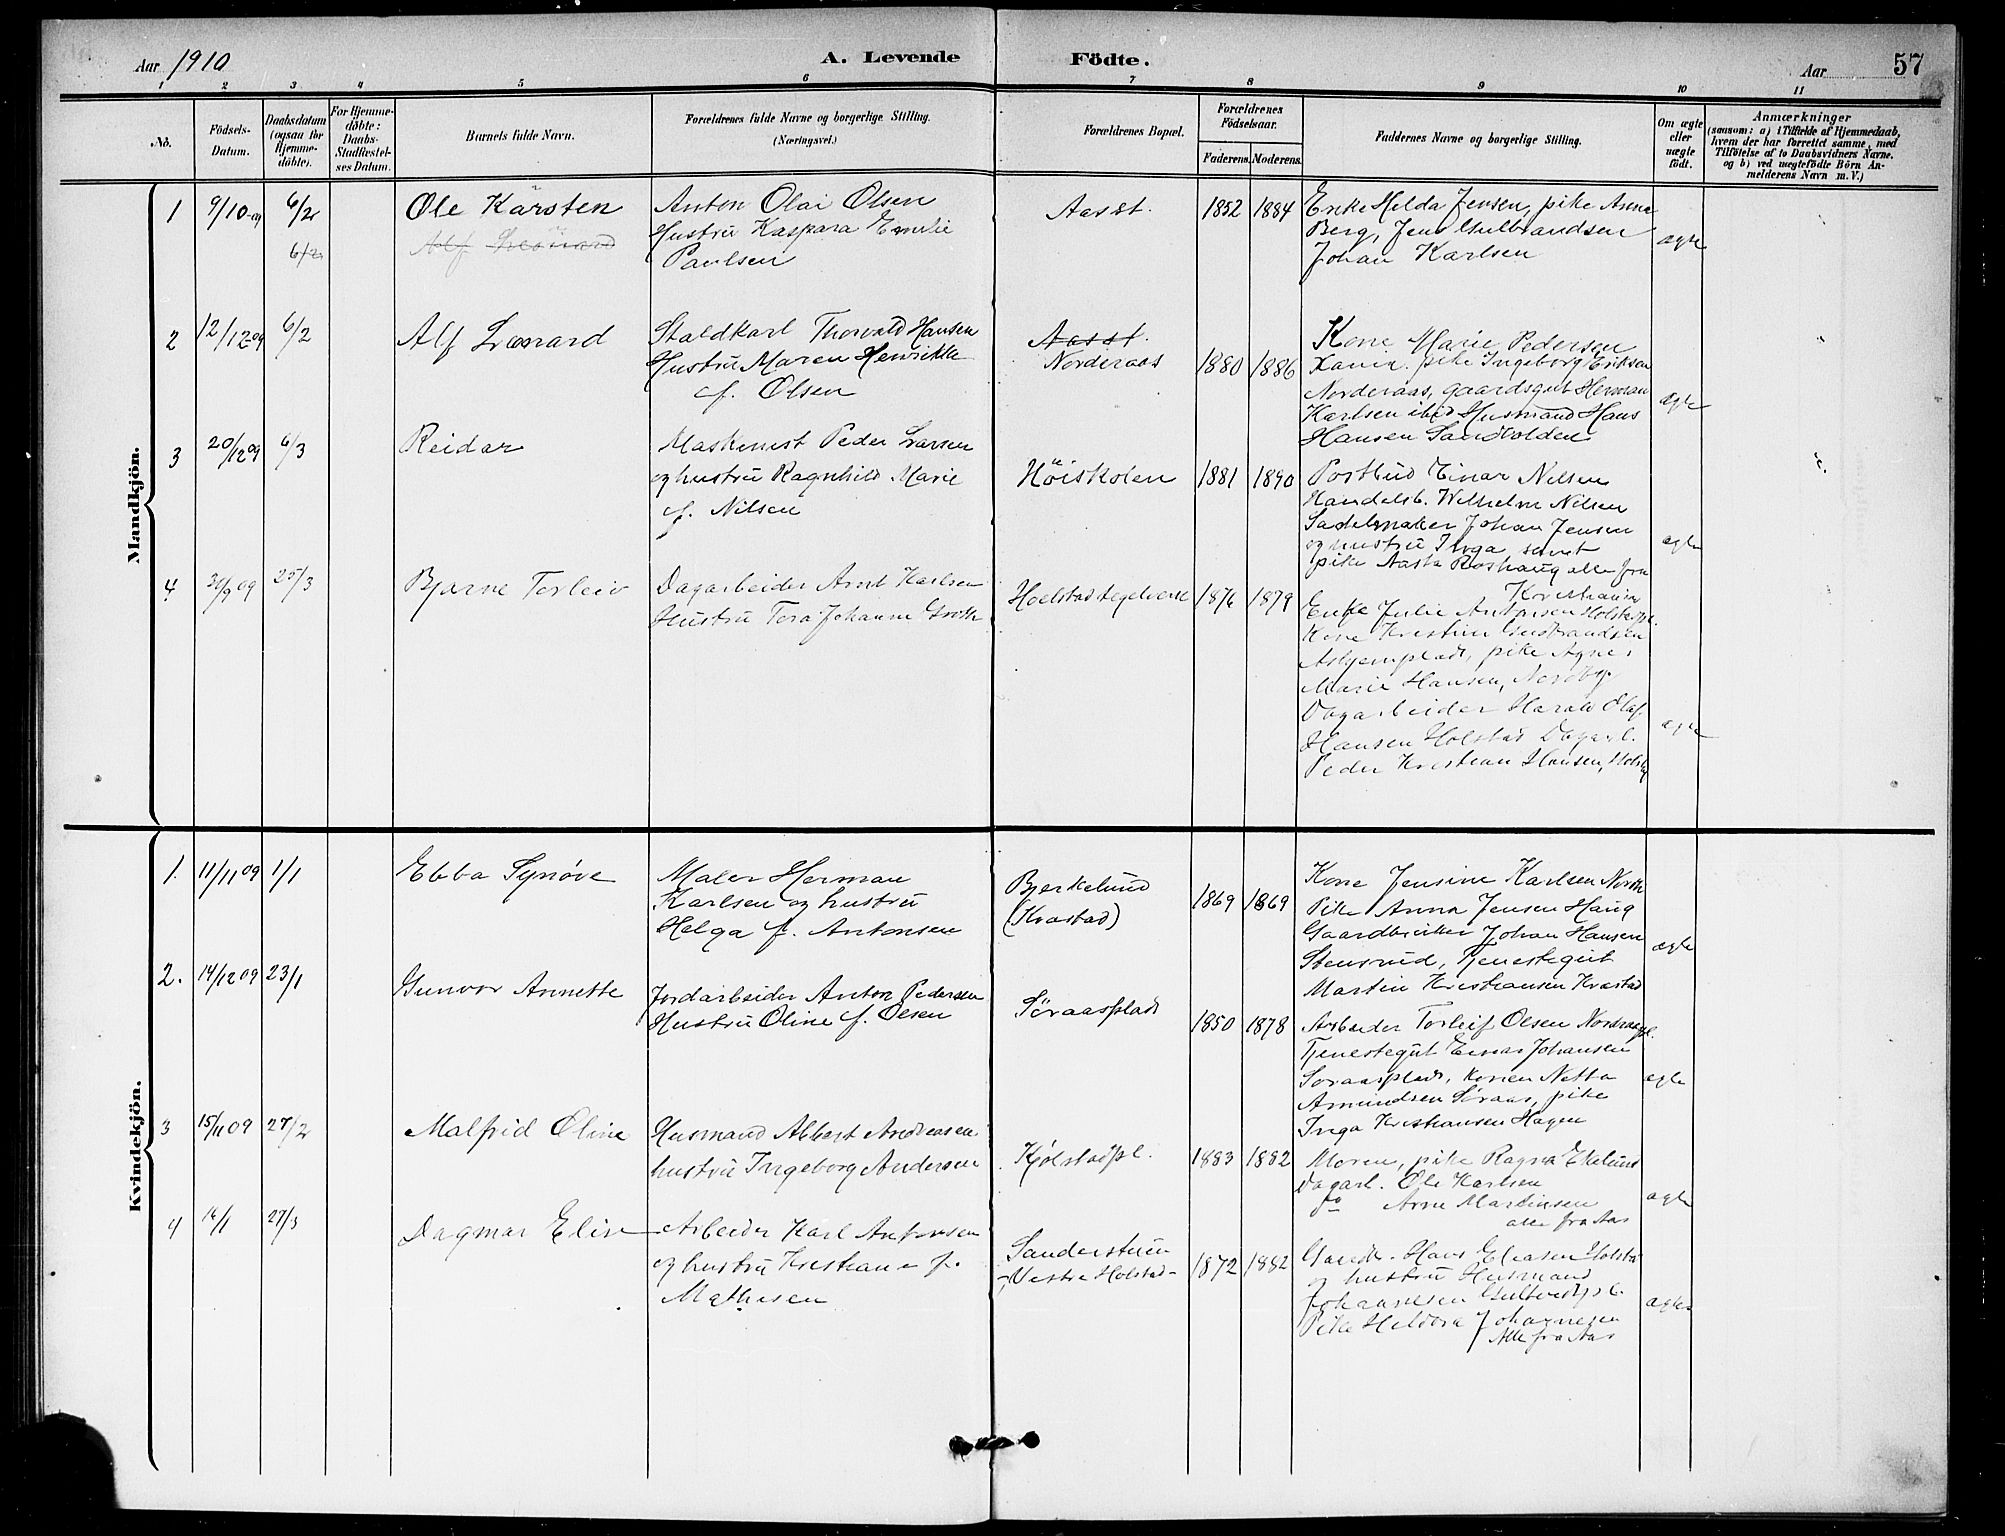 Aar 1910
A. Levende Födte.
Aar 57
1 2 3 4 5 6 7 8 9 10 11
No.
Födsels-Datum.
Daabsdatum (ogsaa for Hjemmedøbte).
For Hjemmedøbte: Daabs-Stadfæstelses Datum.
Barnets fulde Navn.
Forældrenes fulde Navne og borgerlige Stilling.
(Næringsvei.)
Forældrenes Bopæl.
Forældrenes Födselsaar.
Faderens. Moderens.
Faddernes Navne og borgerlige Stilling.
Om ægte eller uægte født.
Anmærkninger
(saasom: a) i Tilfælde af Hjemmedaab,
hvem der har forrettet samme, med
Tilföielse af to Daabsvidners Navne,
og b) ved uægtefödte Börn Anmelderens Navn m. V.)
Mandkjön.
1 9/10-09 6/2 Ole Karsten
6/2 Alf Leonard
Anton Olai Olsen
Hustru Kaspara Emilie
Paulsen
Aasst. 1852 1884
Enke Helda Jensen, pike Anna
Berg, Jens Gulbrandsen
Johan Karlsen
ægte
2 12/12-09 6/2 Alf Leonard
Staldkarl Thorvald Hansen
Hustru Maren Henrikke
f. Olsen
Aasst.
Norderaas 1880 1886
Kone Marie Pedersen
pike Ingeborg Eriksen
Norderaas, gaardsgut Herman
Karlsen ibid Husmand Hans
Hansen Sandvolden
ægte
3 20/12 09 6/3 Reidar
Maskenist Peder Larsen
og hustru Ragnhild Marie
f. Nilsen
Höiskolen 1881 1890
Postbud Einar Nilsen
Handelsb. Wilhelm Nilsen
Sadelmaker Johan Jensen
og hustru Inga samt
pike Aasta Roshaug alle fra
Kristiania
ægte
4 30/9 09 25/3 Bjarne Torleiv
Dagarbeider Arnt Karlsen
Hustru Tora Johanne Groth
Holstad teglverk 1876 1879
Enke Julie Antonsen Holstadpl.
Kone Kristine Gulbrandsen
Askjemplads, pike Agnes
Marie Hansen, Nordby
Dagarbeider Harald Olaf
Hansen Holstad Dagarb.
Peder Kristian Hansen, Holstad
ægte
Kvindekjön.
1. 11/11 09 1/1 Ebba Synöve
Maler Herman
Karlsen og hustru
Helga f. Antonsen
Bjerkelund
(Krastad) 1869 1869
Kone Jensine Karlsen North
Pike Anna Jensen Haug
Gaardbruker Johan Hansen
Stensrud, Tjenestegut
Martin Kristiansen Krastad
ægte
2. 14/12 09 23/1 Gunvor Annette
Jordarbeider Anton Pedersen
Hustru Oline f. Olsen
Söraasplads 1850 1878
Arbeider Torleif Olsen Norderaaspl.
Tjenestegut Einar Johansen
Soraasplads, Konen Netta
Amundsen Söraas, pike
Inga Kristiansen Hagen
ægte
3 15/11 09 27/2 Malfrid Oline
Husmand Albert Andreasen
hustru Ingeborg Andersen
Kjølstadpl. 1883 1882
Moren, pike Ragna Ekelund
Dagarb. Ole Karlsen
do Arne Martinsen
alle fra Aas
ægte
4 14/1 27/3 Dagmar Elise
Arbeider Karl Antonsen
og hustru Kristiane f.
Mathisen
Sanderstuen
Vestre Holstad 1872 1882
Gaardb. Hans Eliasen Holstad
og hustru Husmand
Johannesen
Pike Heldora Johannesen
Alle fra Aas
ægte